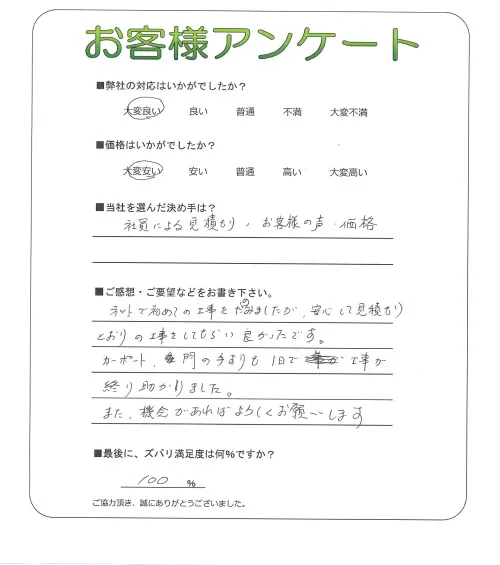 お客様アンケート
■弊社の対応はいかがでしたか？
大変良い 良い 普通 不満 大変不満
■価格はいかがでしたか？
大変安い 安い 普通 高い 大変高い
■当社を選んだ決め手は？
社員による見積もり、お客様の声、価格
■ご感想・ご要望などをお書き下さい。
ネットで初めての工事をたのみましたが、安心して見積もり
どおりの工事をしてもらい良かったです。
カーポート、門の手すりも1日で 工事が
終り助かりました。
また、機会があればよろしくお願いします
■最後に、ズバリ満足度は何％ですか？
100 ％
ご協力頂き、誠にありがとうございました。